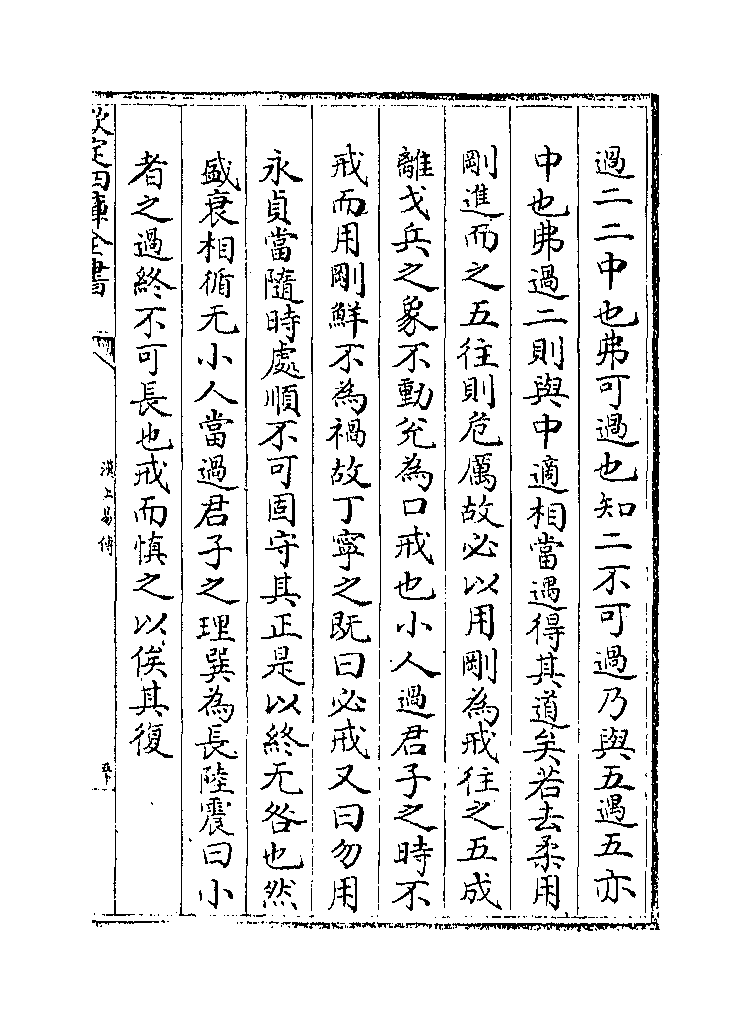 過二二中也弗可過也知二不可過乃與五遇五亦
中也弗過二則與中適相當遇得其道矣若去柔用
剛進而之五往則危厲故必以用剛為戒往之五成
離戈兵之象不動兊為口戒也小人過君子之時不
戒而用剛鮮不為禍故丁寧之既曰必戒又曰勿用
永貞當隨時處順不可固守其正是以終无咎也然
盛衰相循无小人當過君子之理巽為長陸震曰小
者之過終不可長也戒而慎之以俟其復
欽定四庫全書
漢上易傳